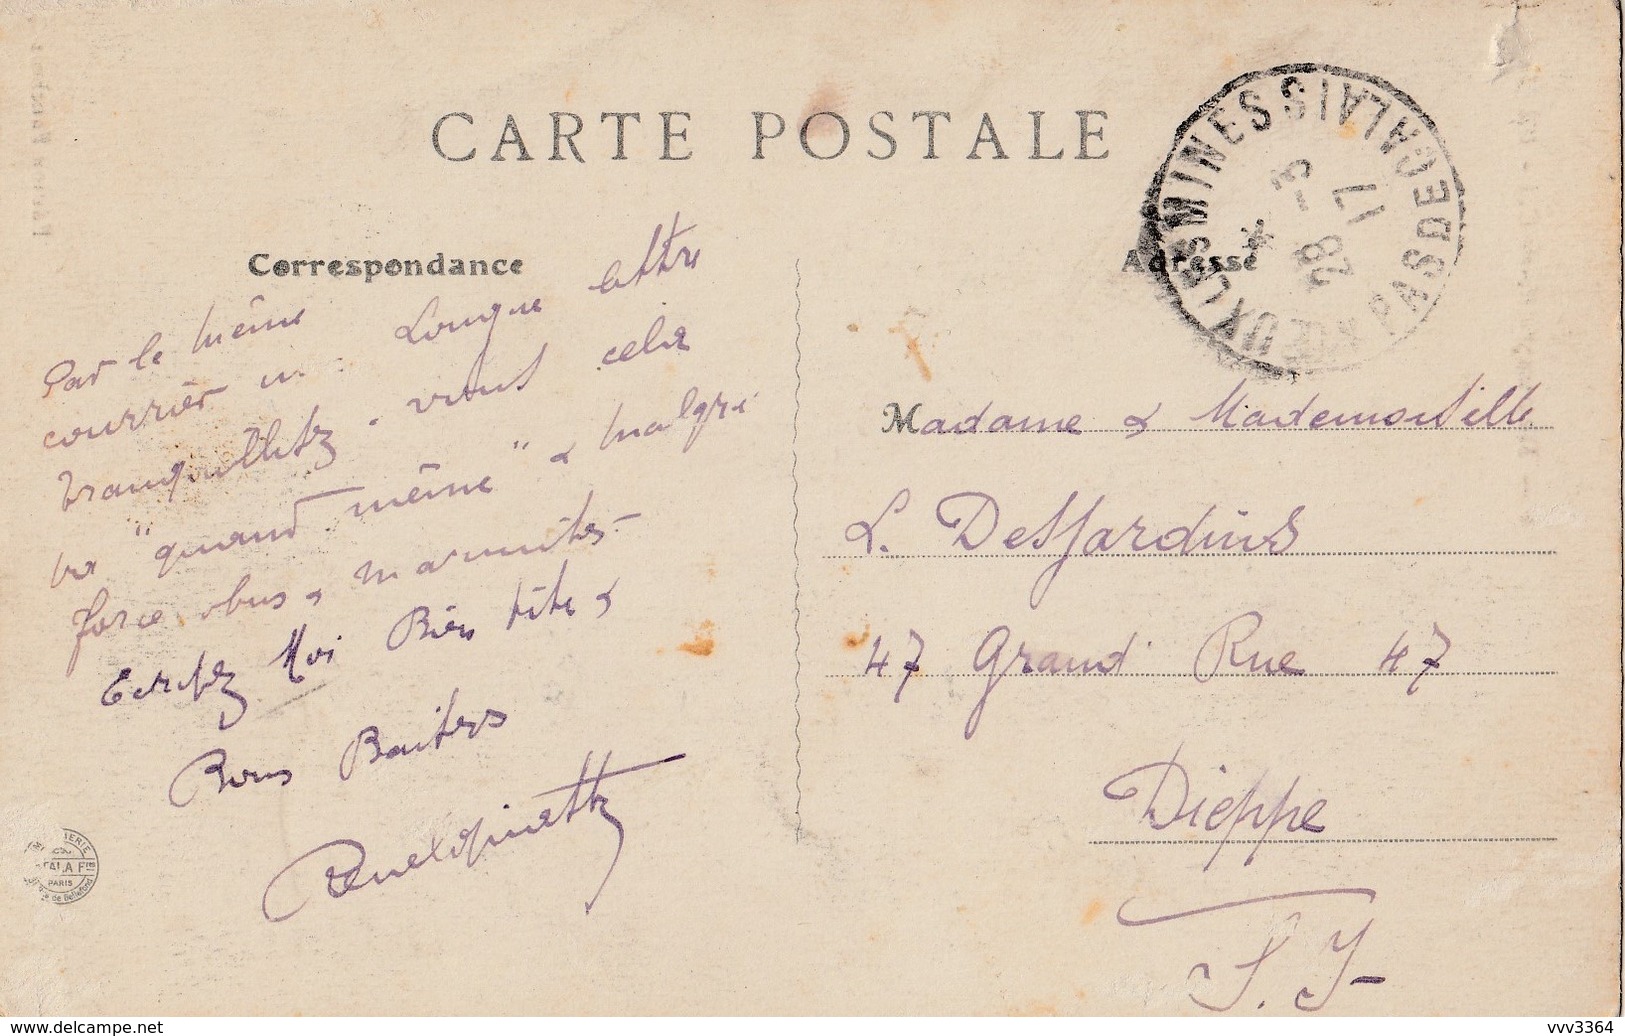 CARTE POSTALE
Correspondance
Adresse
NŒUX LES MINES PAS DE CALAIS
* 28 -3 17
Par le même
courrier un. Longue lettre
tranquillitez-vous cela
va "quand même" & malgré
force obus & marmites-
Ecrivez Moi Bien vite &
Bons Baisers
Madame & Mademoiselle
L. Desjardins
47 Grand Rue 47
Dieppe
S. I-
PARIS
delcampe.net
vvv3364